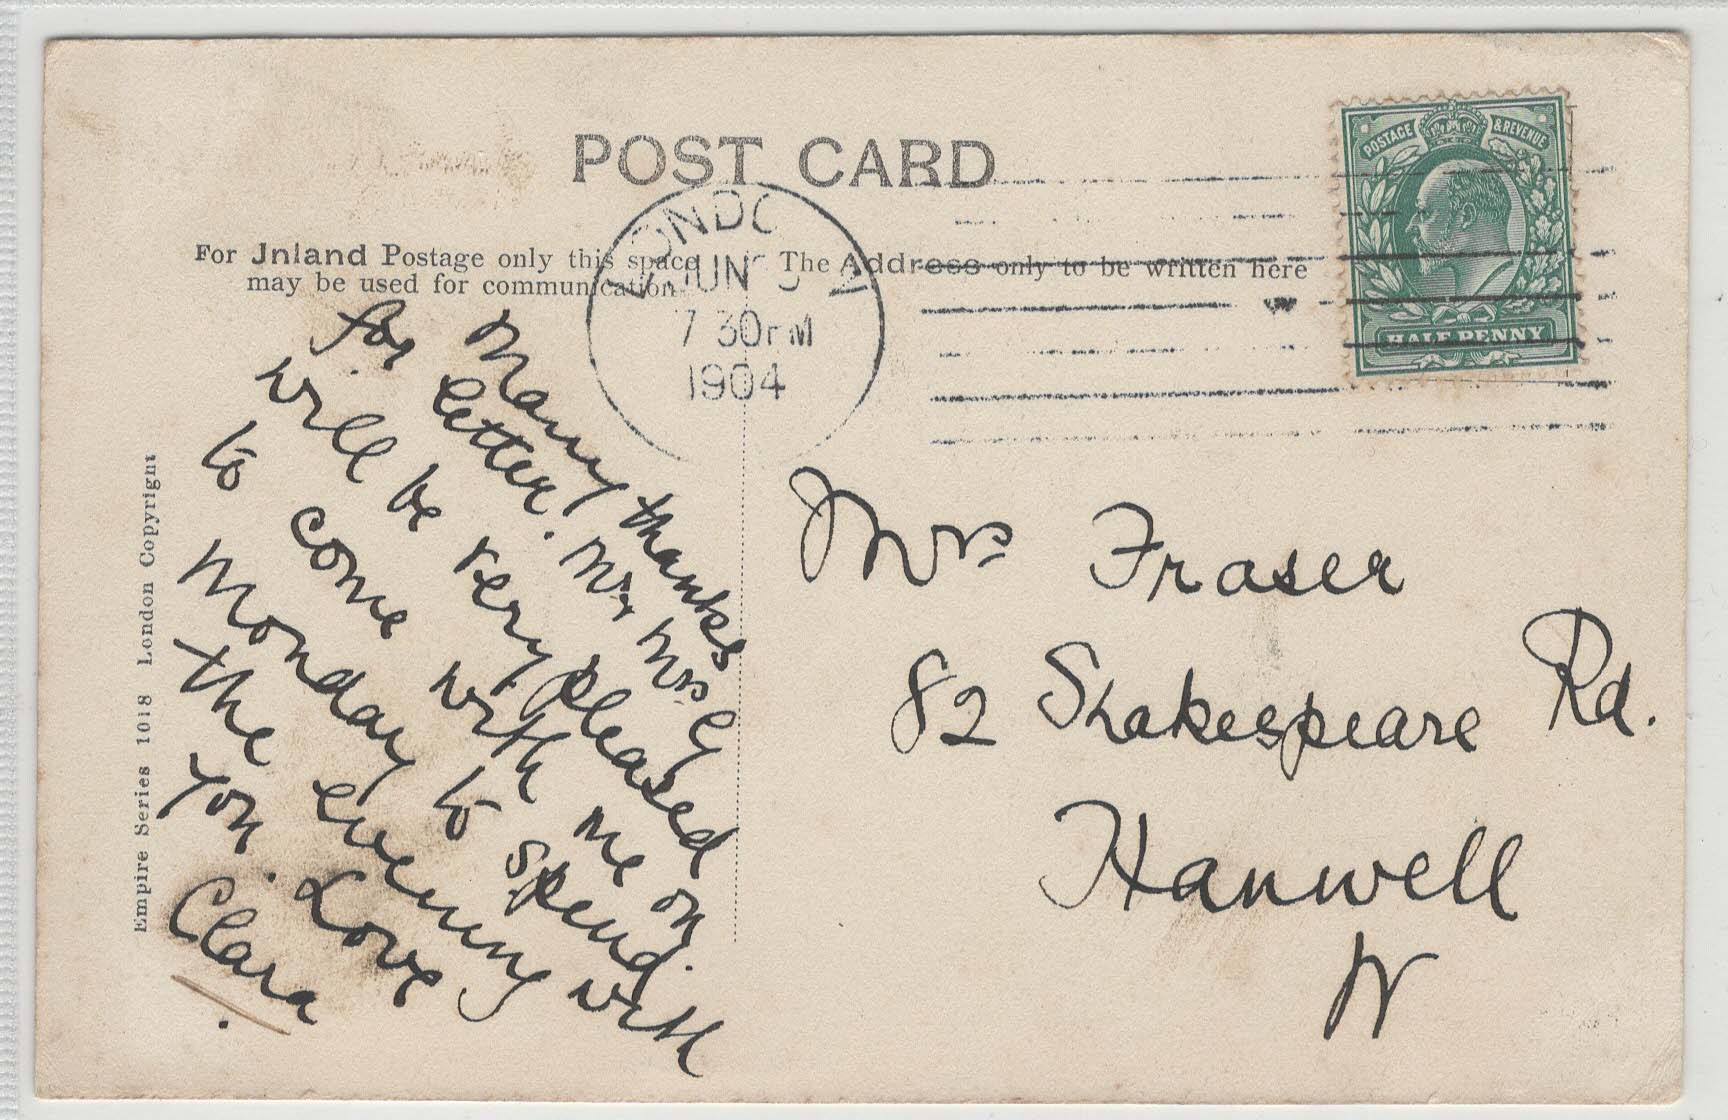 POST CARD
POSTAGE & REVENUE
HALF PENNY
For Inland Postage only this space
may be used for communication
The Address only to be written here
LONDON W
JUN
7 30 PM
1904
Many thanks
for letter. Mr Mrs G
will be very pleased
to come with me on
Monday to spend
the evening with
you. Love
Clara.
Mrs Fraser
82 Shakespeare Rd.
Hanwell
W
Empire Series 1018 London Copyright